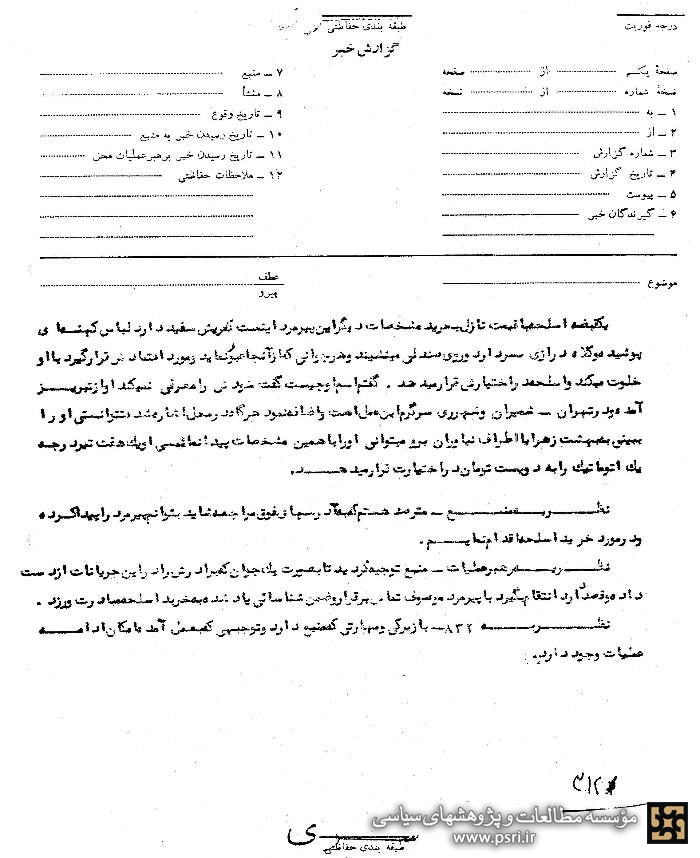 درجه فوریت
طبقه بندی حفاظتی
گزارش خبر
صفحهٔ یکم از صفحه
نسخهٔ شماره از نسخه
۱ ـ به
۲ ـ از
۳ ـ شماره گزارش
۴ ـ تاریخ گزارش
۵ ـ پیوست
۶ ـ گیرندگان خبر
۷ ـ منبع
۸ ـ منشأ
۹ ـ تاریخ وقوع
۱۰ ـ تاریخ رسیدن خبر به منبع
۱۱ ـ تاریخ رسیدن خبر برهبر عملیات محل
۱۲ ـ ملاحظات حفاظتی
موضوع
عطف
پیرو
یکقبضه اسلحه با قیمت نازل بخرید مشخصات دیگر این پیرمرد اینست ته ریش سفید دارد لباس کهنه ای
پوشیده و کلاه درازی بسر دارد و روی صندلی مینشیند و هر جوانی که از آنجا عبور نماید و مورد اعتماد قرار گیرد با او
خلوت میکند و اسلحه در اختیارش قرار میدهد . گفتم اسم او چیست گفت خودش را معرفی نمیکند او از تبریز
آمده و در تهران ـ شمیران و شهرری سرگرم این عمل است و اضافه نمود هرگاه در محل اشاره شده نتوانستی او را
ببینی به بهشت زهرا یا اطراف نیاوران برو میتوانی او را با همین مشخصات پیدا نمائی او یک هفت تیر درجه
یک اتوماتیک را به دویست تومان در اختیارت قرار میدهد.
نظریه منبع ـ مترصد هستم که به آدرسهای فوق مراجعه شاید بتوانم پیرمرد را پیدا کرده
و در مورد خرید اسلحه اقدام نمایم .
نظریه رهبر عملیات ـ منبع توجیه گردید تا بصورت یک جوان که برادرش را در این جریانات از دست
داده و قصد دارد انتقام بگیرد با پیرمرد موصوف تماس برقرار و ضمن شناسائی یاد شده به خرید اسلحه مبادرت ورزد .
نظریه ۸۳۲ ـ با زیرکی و مهارتی که منبع دارد و توجیهی که بعمل آمد امکان ادامه
عملیات وجود دارد.
۳۱۲
مؤسسه مطالعات و پژوهشهای سیاسی
www.psri.ir
طبقه بندی حفاظتی